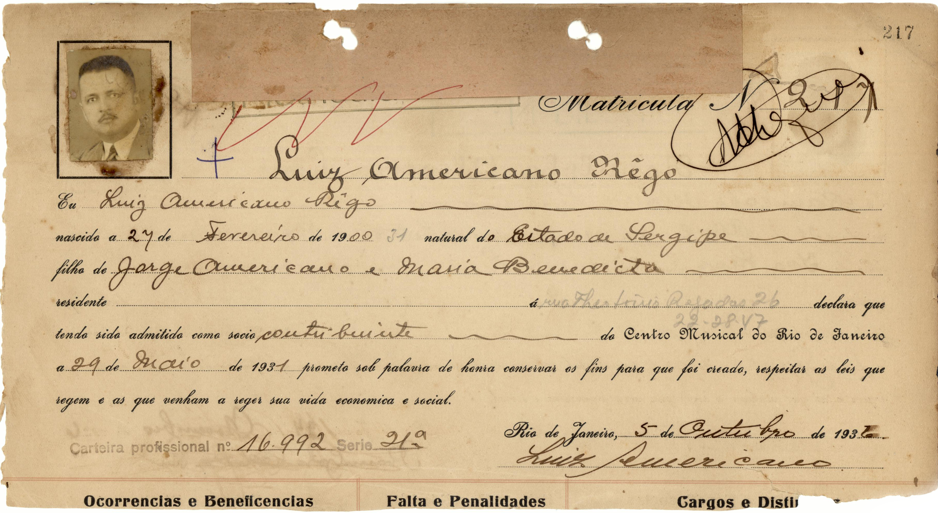 217
Matricula Nº 217
Luiz Americano Rêgo
Eu Luiz Americano Rêgo
nascido a 27 de Fevereiro de 1900 31 natural do Estado de Sergipe
filho de Jorge Americano e Maria Benedicta
residente á rua Theotonio Regadas 26 declara que
22-2847
tendo sido admitido como socio contribuinte do Centro Musical do Rio de Janeiro
a 29 de Maio de 1931 prometo sob palavra de honra conservar os fins para que foi creado, respeitar as leis que
regem e as que venham a reger sua vida economica e social.
Rio de Janeiro, 5 de Outubro de 193
Carteira profissional nº 16.992 Serie 21ª
Luiz Americano
Ocorrencias e Beneficencias Falta e Penalidades Cargos e